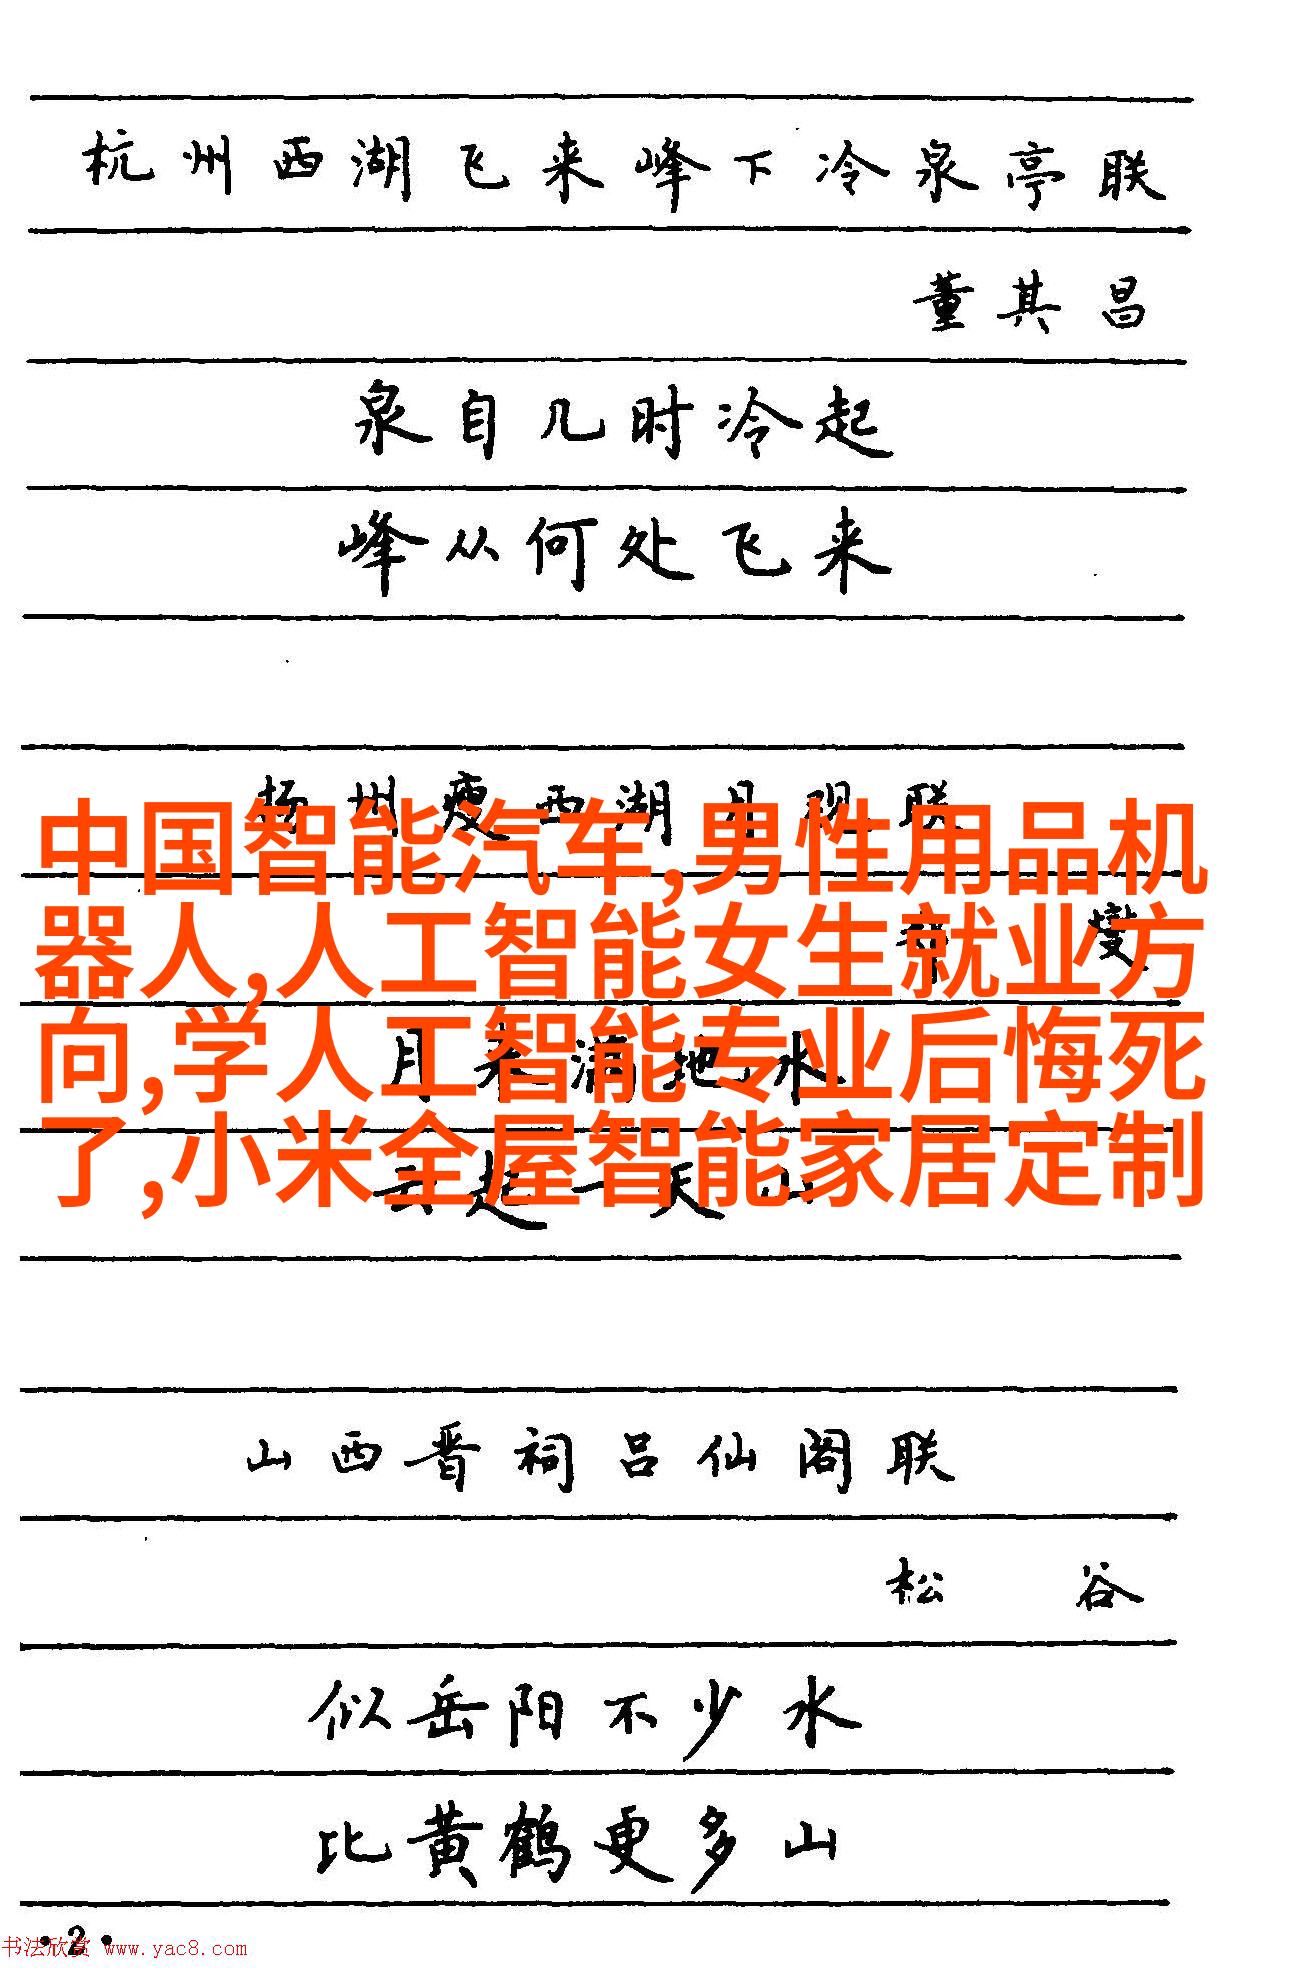 杭州西湖飞来峰下冷泉亭联
董其昌
泉自几时冷起
峰从何处飞来
扬州瘦西湖月观联
中国智能汽车,男性用品机
器人,人工智能女生就业方
燮
向,学人工智能专业后悔死
月来满地水
了,小米全屋智能家居定制
云起一天山
山西晋祠吕仙阁联
松谷
似岳阳不少水
比黄鹤更多山
·2·
书法欣赏 www.yac8.com